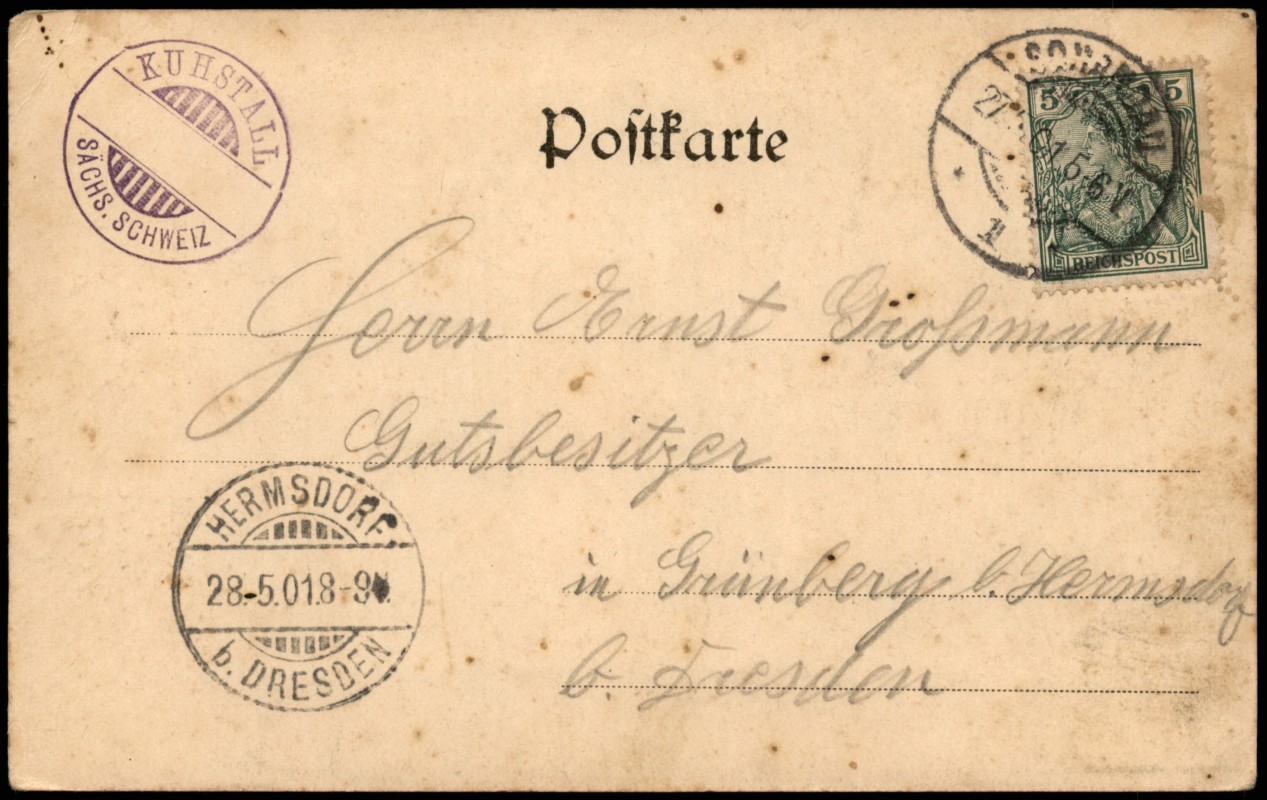 KUHSTALL
SÄCHS. SCHWEIZ
Postkarte
5 5
REICHSPOST
1
Herrn Ernst Großmann
Gutsbesitzer
in Grünberg b. Hermsdorf
b. Dresden
HERMSDORF
28.5.01.8-9
b. DRESDEN